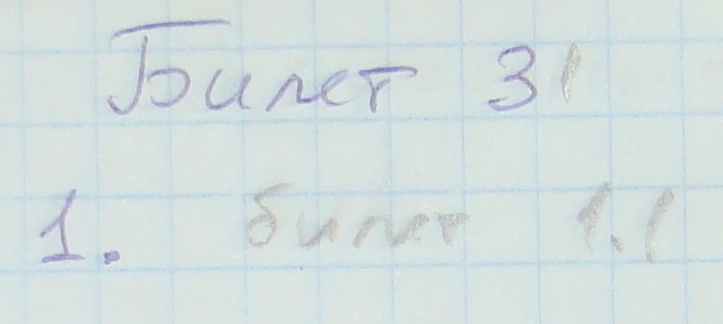 Билет 31
1. билет 1.1